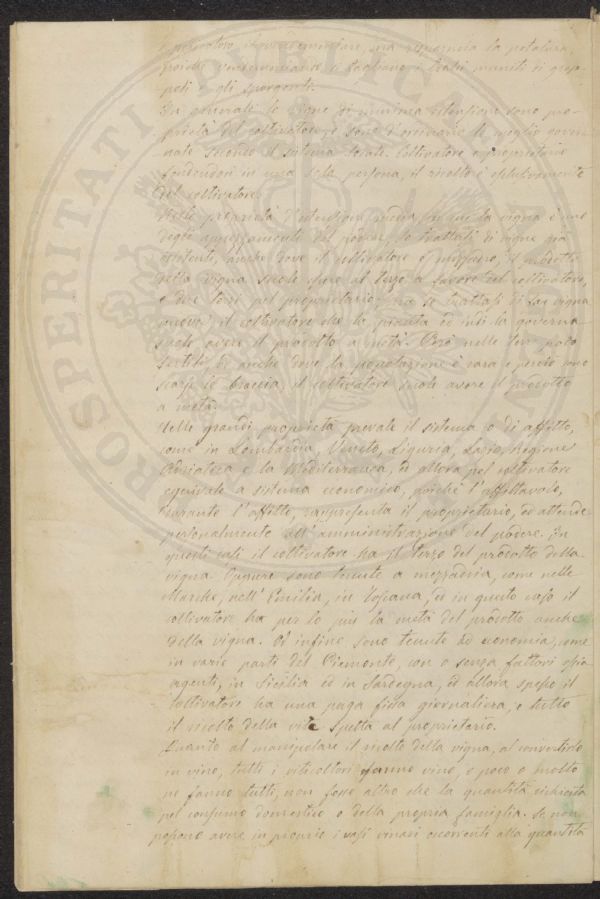 risparmia la potatura,
poiché vendemmiando si tagliano i tralci muniti di grap-
poli e gli sporgenti.
In generale le vigne di minima estensione sono pro-
prietà del coltivatore e sono d'ordinario le meglio gover-
nate secondo il sistema locale. Coltivatore e proprietario
fondendosi in una sola persona, il ricolto è esclusivamente
del coltivatore.
Nelle proprietà d'estensione media, in cui la vigna è uno
degli appezzamenti del podere, se trattasi di vigne già
esistenti, anche dove il coltivatore è mezzadro, il prodotto
della vigna suole essere al terzo a favore del coltivatore,
e due terzi pel proprietario, ma se trattasi di far vigna
nuova, il coltivatore che la pianta ed indi la governa
suole avere il prodotto a metà. Però nelle terre poco
fertili ed anche dove la popolazione è rara e perciò sono
scarse le braccia, il coltivatore suole avere il prodotto
a metà.
Nelle grandi proprietà prevale il sistema o di affitto,
come in Lombardia, Veneto, Liguria, Lazio, Regione
Adriatica e la Mediterranea, ed allora pel coltivatore
equivale a sistema economico, poichè l'affittavolo,
durante l'affitto, rappresenta il proprietario, ed attende
personalmente all'amministrazione del podere. In
questi casi il coltivatore ha il terzo del prodotto della
vigna. Oppure sono tenute a mezzadria, come nelle
Marche, nell'Emilia, in Toscana, ed in questo caso il
coltivatore ha per lo più la metà del prodotto anche
della vigna. Od infine sono tenute ad economia, come
in varie parti del Piemonte, con o senza fattori ossia
agenti, in Sicilia ed in Sardegna, ed allora spesso il
coltivatore ha una paga fissa giornaliera, e tutto
il ricolto della vite spetta al proprietario.
Quanto al manipolare il ricolto della vigna, al convertirlo
in vino, tutti i viticoltori fanno vino, e poco o molto
ne fanno tutti, non fosse altro che la quantità richiesta
pel consumo domestico o della propria famiglia. Se non
possono avere in proprio i vasi vinari occorrenti alla quantità
PROSPERITATI PUBLICAE